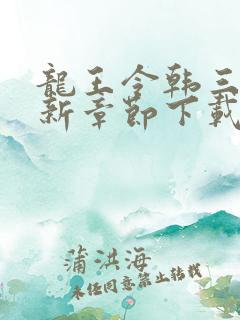 龍王令韩三
新章節下載
蒲洪海
未经同意禁止转载